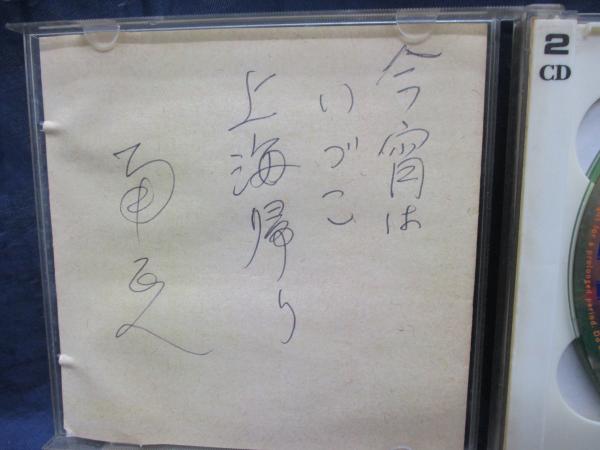 今宵は
いづこ
上海帰り
2
CD
for a prolonged period.